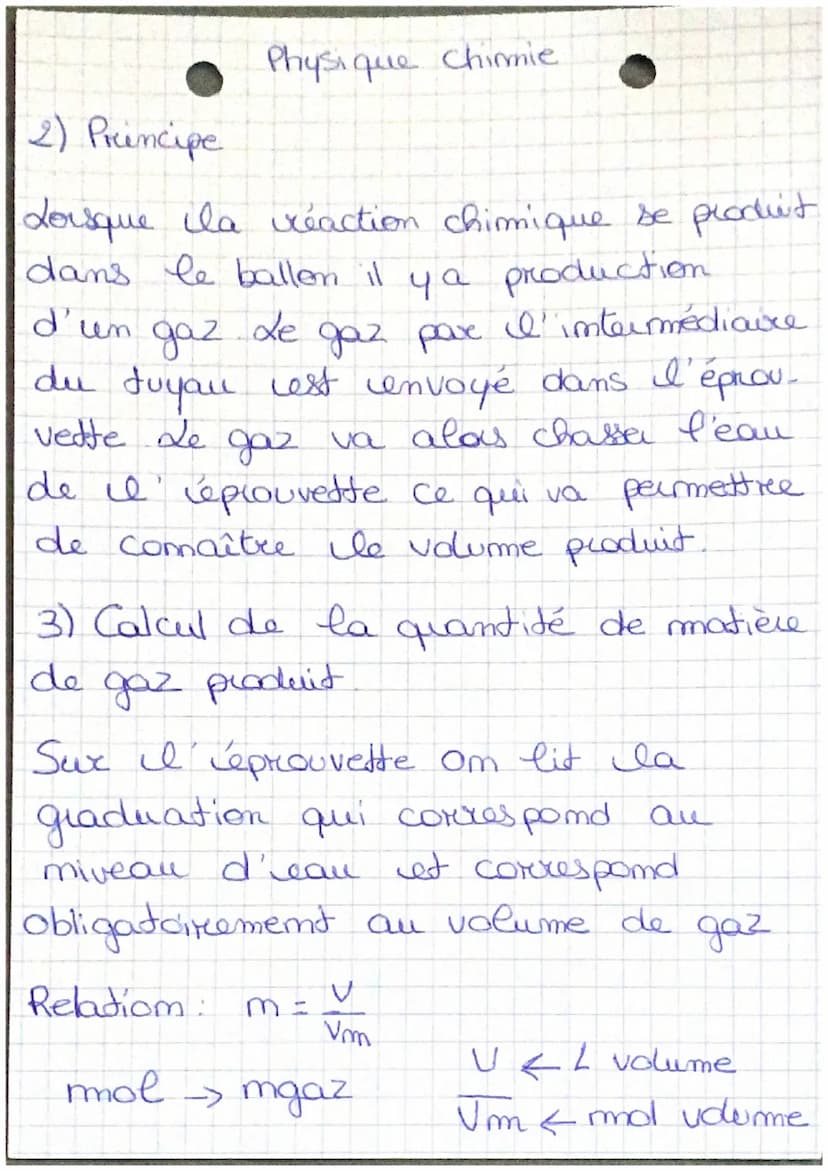 Physique Chimie
2) Principe
Lorsque la réaction chimique se produit
dans le ballon il y a production
d'un gaz. Le gaz par l'intermédiaire
du tuyau est envoyé dans l'éprou-
vette Le gaz va alors chasser l'eau
de l'éprouvette ce qui va permettre
de connaître le volume produit.
3) Calcul de la quantité de matière
de gaz produit
Sur l'éprouvette on lit la
graduation qui correspond au
niveau d'eau et correspond
obligatoirement au volume de gaz
Relation : n = V
Vm
V ← L volume
mol → ngaz
Vm ← mol volume